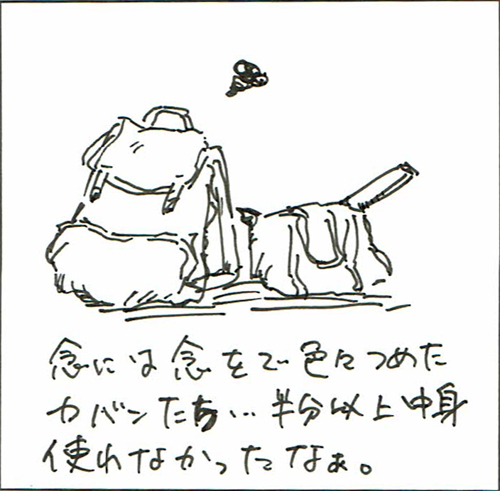 念には念をで色々つめた
カバンたち…半分以上中身
使わなかったなぁ。